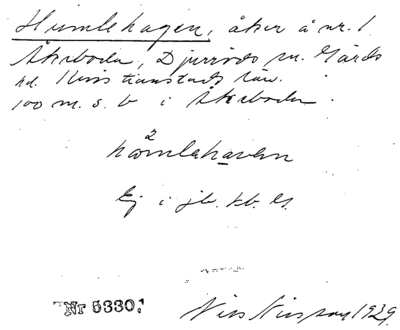 Humlehagen, åker å nr. 1
Åkeboda, Djurröds sn. Gärds
hd. Kristianstads län.
100 m. s. v. i Åkeboda.
2
homlehaven
Ej i jb. kb. ls.
Nr 5330.
Nils Nilsson 1929.